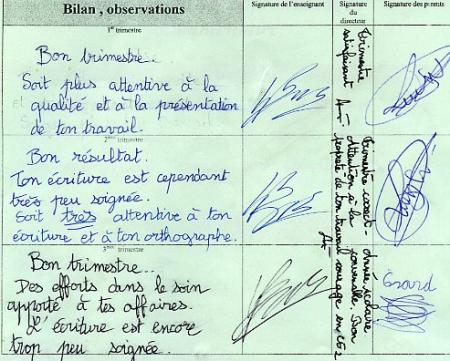 Bilan, observations
Signature de l'enseignant
Signature
du
directeur
Signature des parents
1er trimestre
Bon trimestre.
Soit plus attentive à la
qualité et à la présentation
de ton travail.
Trimestre
satisfaisant
2ème trimestre
Bon résultat.
Ton écriture est cependant
très peu soignée.
Soit très attentive à ton
écriture et à ton orthographe.
Trimestre correct.
Attention à la
propreté de ton travail
3ème trimestre
Bon trimestre...
Des efforts dans le soin
apporté à tes affaires.
L'écriture est encore
trop peu soignée.
Année scolaire
convenable. Bon
passage en CE2